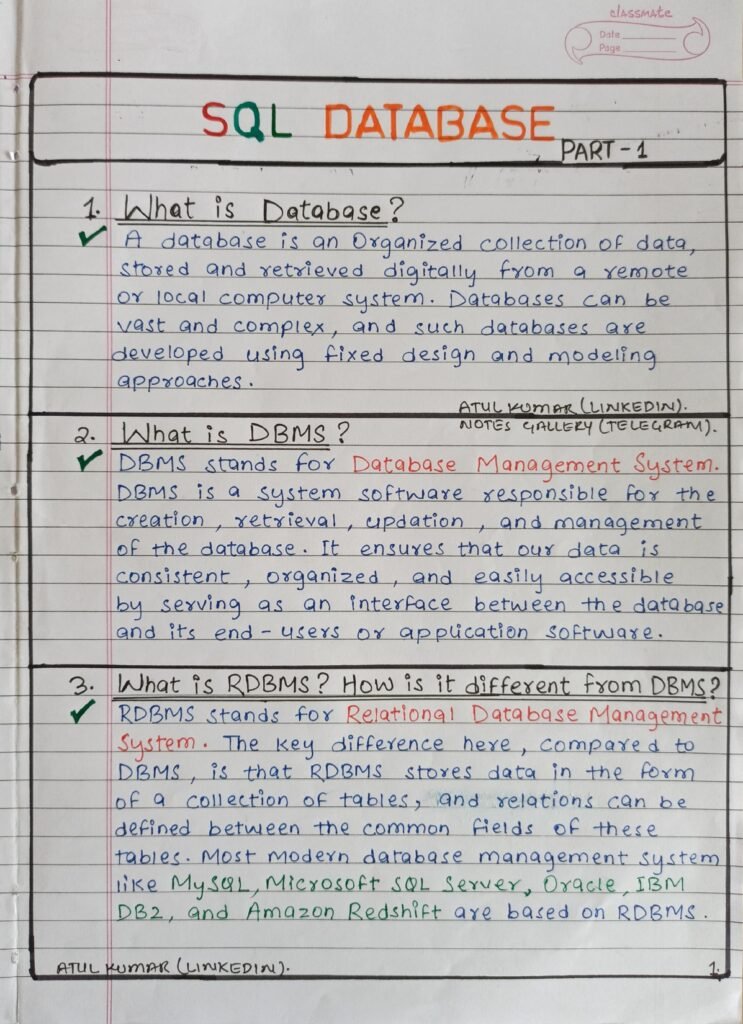 classmate
Date
Page
SQL DATABASE
PART - 1
1. What is Database?
A database is an Organized collection of data,
stored and retrieved digitally from a remote
or local computer system. Databases can be
vast and complex, and such databases are
developed using fixed design and modeling
approaches.
ATUL KUMAR (LINKEDIN).
NOTES GALLERY (TELEGRAM).
2. What is DBMS?
DBMS stands for Database Management System.
DBMS is a system software responsible for the
creation, retrieval, updation, and management
of the database. It ensures that our data is
consistent, organized, and easily accessible
by serving as an interface between the database
and its end-users or application software.
3. What is RDBMS? How is it different from DBMS?
RDBMS stands for Relational Database Management
System. The key difference here, compared to
DBMS, is that RDBMS stores data in the form
of a collection of tables, and relations can be
defined between the common fields of these
tables. Most modern database management system
like MySQL, Microsoft SQL Server, Oracle, IBM
DB2, and Amazon Redshift are based on RDBMS.
ATUL KUMAR (LINKEDIN).
1.